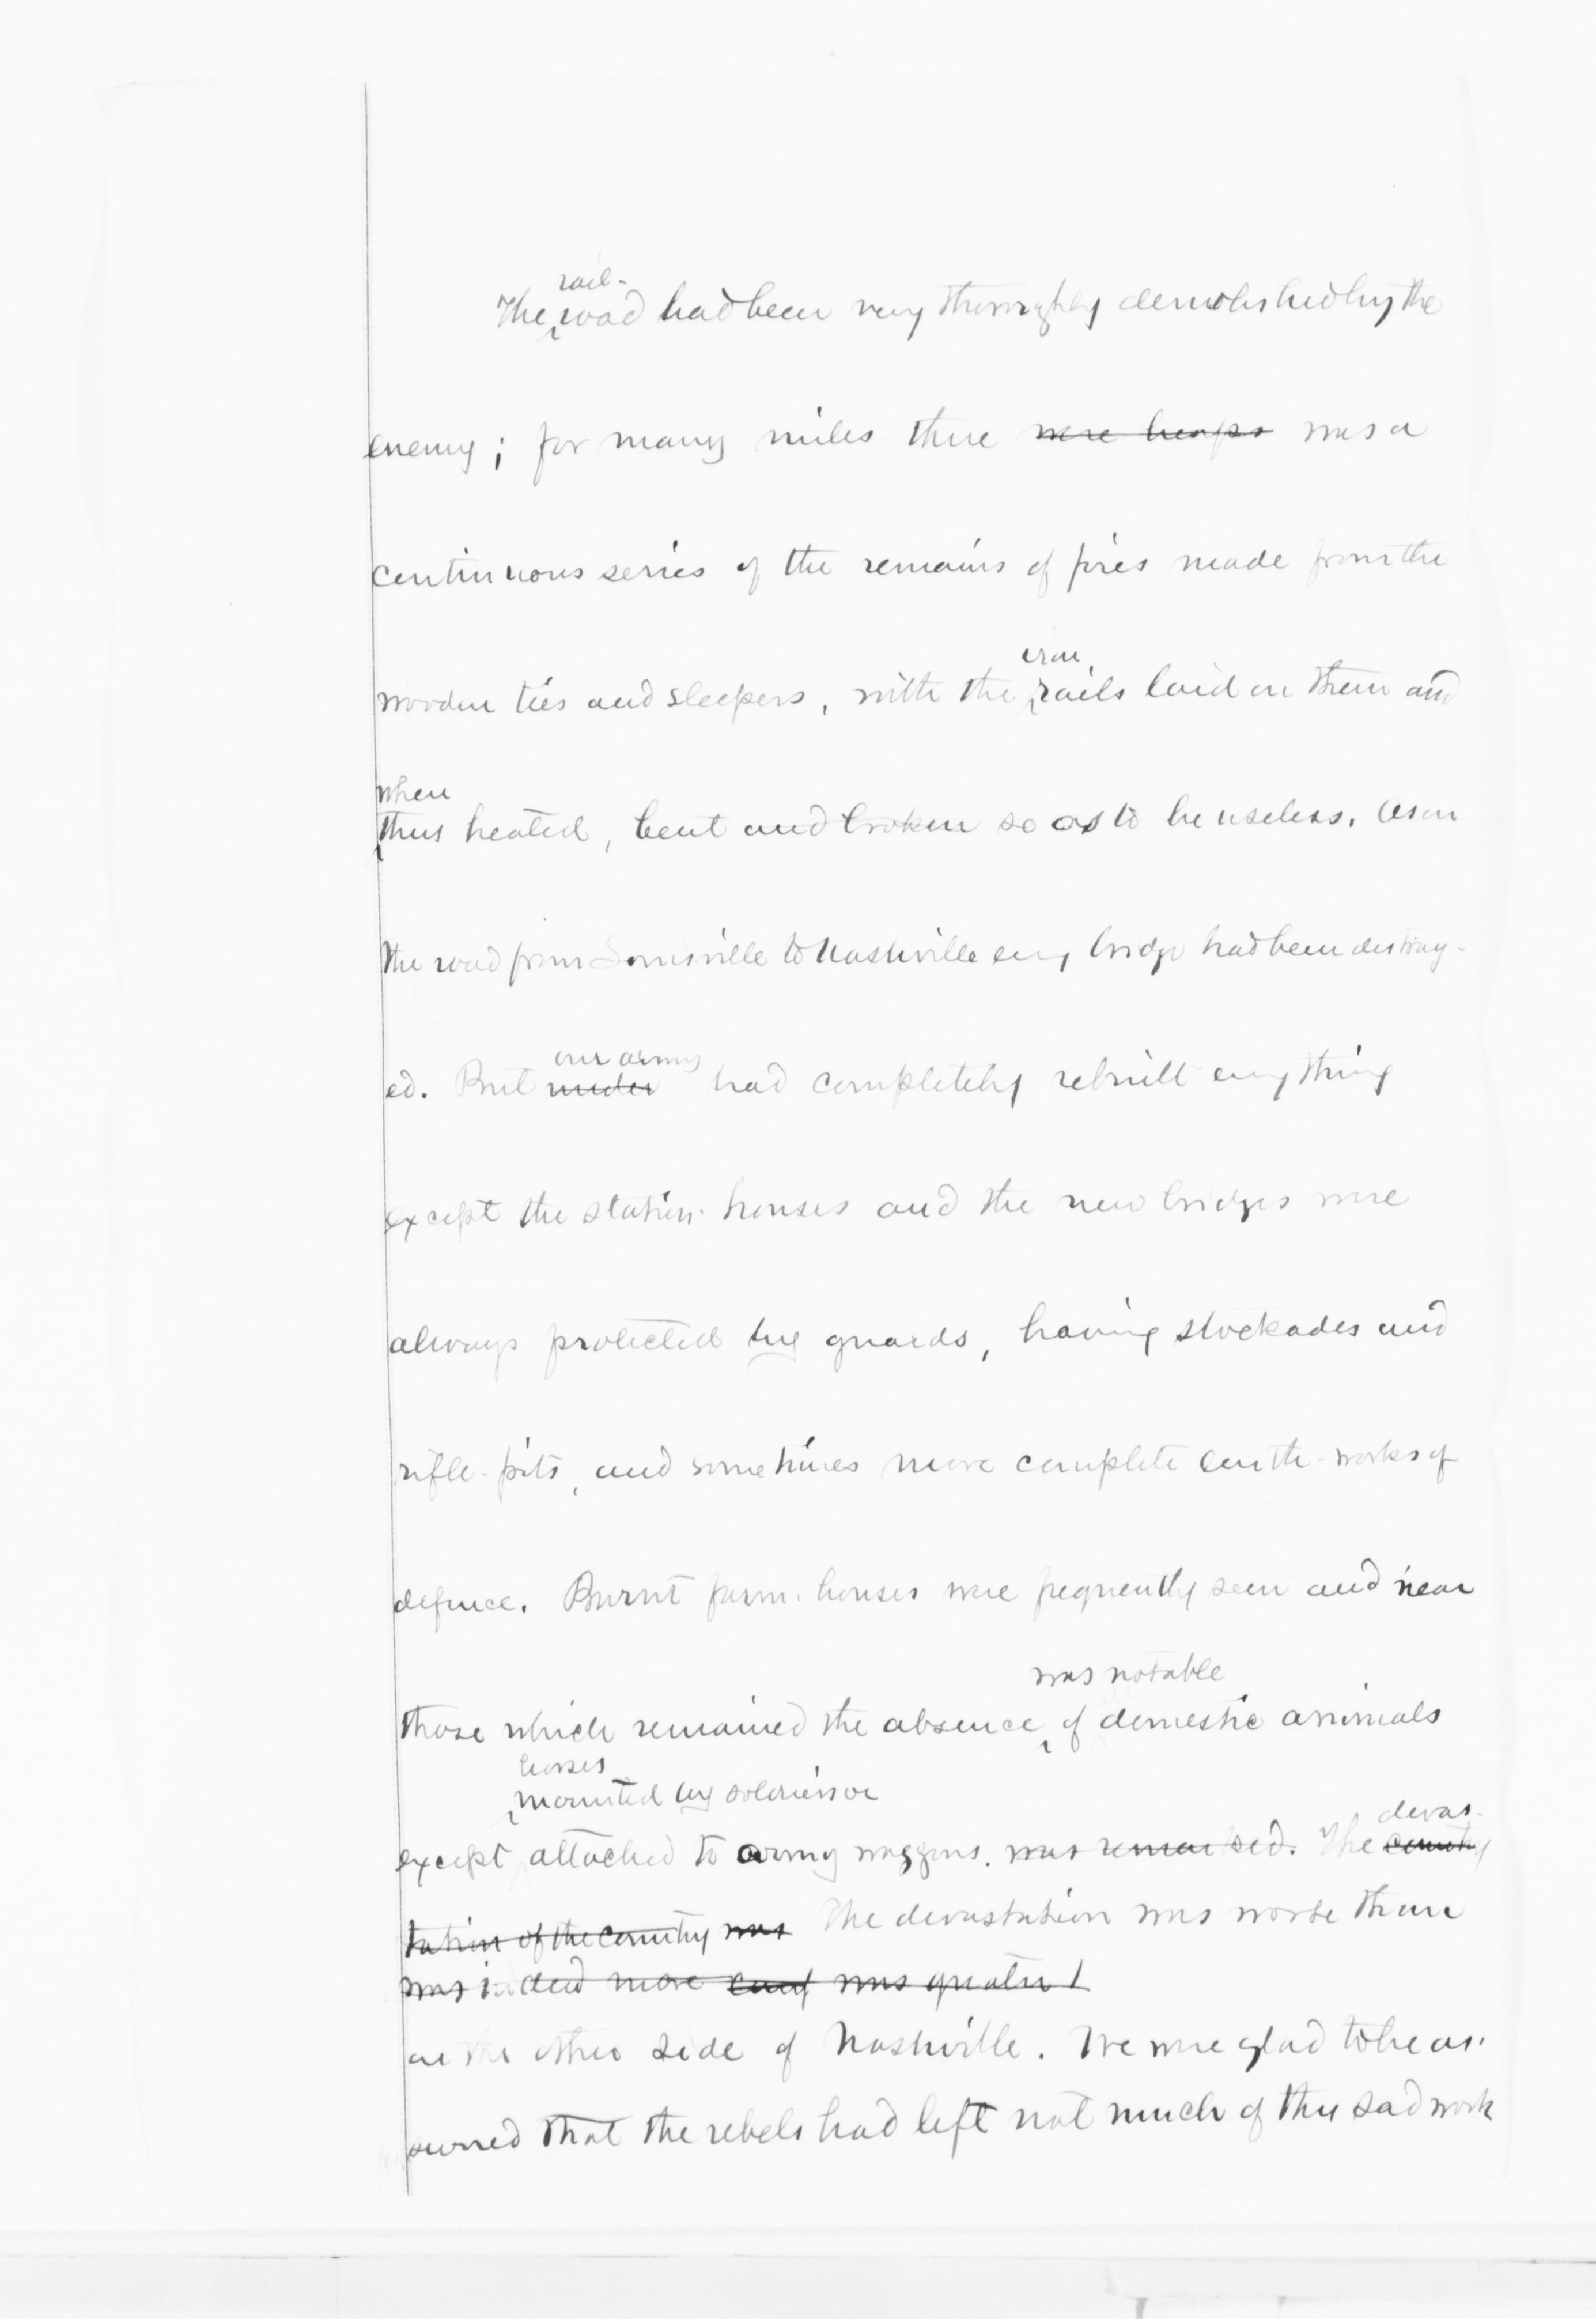 rail-
The road had been very thoroughly demolished by the
enemy; for many miles there were heaps was a
continuous series of the remains of fires made from the
iron
wooden ties and sleepers, with the rails laid on them and
when
thus heated, bent and broken so as to be useless. As on
the road from Louisville to Nashville every bridge had been destroy-
our army
ed. But under had completely rebuilt everything
except the station-houses and the new bridges were
always protected by guards, having stockades and
rifle-pits, and sometimes more complete earth-works of
defence. Burnt farm-houses were frequently seen and near
was notable
those which remained the absence of domestic animals
horses
mounted by soldiers or
devas-
except attached to army waggons. was remarked. The country
tation of the country was The devastation was worse than
was indeed more was greater t
on the other side of Nashville. We were glad to be as-
sured that the rebels had left not much of this sad work